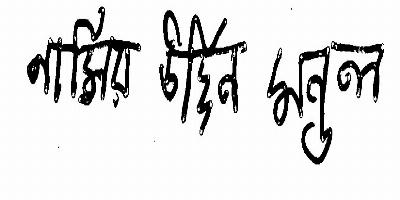 নাসির উদ্দিন মনুল